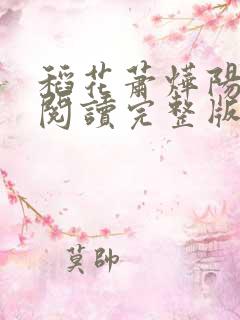 稻花蕭燁陽
閱讀完整版
莫帥